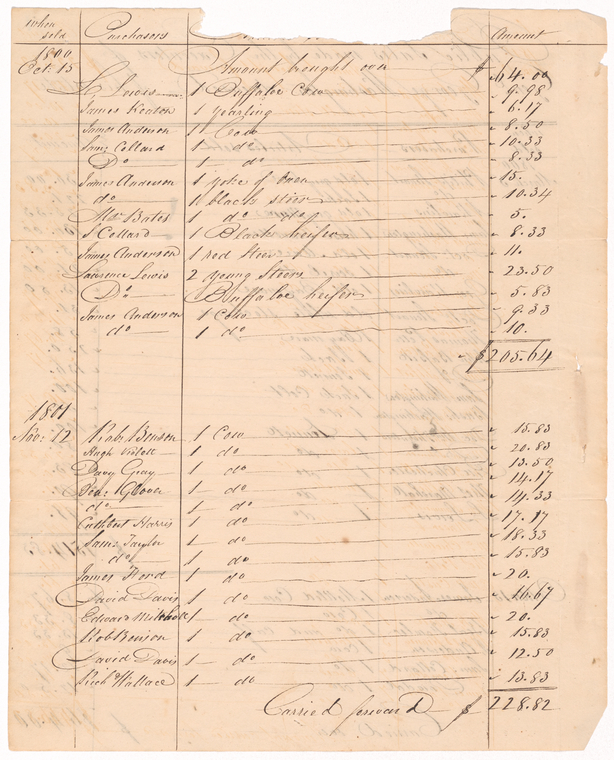 when sold Purchasers Amount
1800
Oct. 15 Amount brought over $ 64.00
L. Lewis 1 Buffaloe Cow 9.98
James Keaton 1 yearling 6.17
James Anderson 1 Cow 8.50
Saml Collard 1 do 10.33
Do 1 do 8.33
James Anderson 1 yoke of oxen 15.
do 1 black steer 10.34
Mr Bates 1 do do 5.
S Collard 1 Black heifer 8.33
James Anderson 1 red Steer 11.
Lawrence Lewis 2 young Steers 23.50
Do Buffaloe heifer 5.83
James Anderson 1 Cow 9.33
do 1 do 10.
$205.64
1801
Nov: 12 Robt Benson 1 Cow 15.83
Hugh Violett 1 do 20.83
Davy Gray 1 do 13.50
Glover 1 do 14.17
do 1 do 14.33
Cuthbert Harris 1 do 17.17
Saml Taylor 1 do 18.33
do 1 do 15.83
James Ford 1 do 20.
David Davis 1 do 16.67
Edward Mitchell 1 do 20.
Rob Benson 1 do 15.83
David Davis 1 do 12.50
Richd Wallace 1 do 13.83
Carried forward $ 228.82